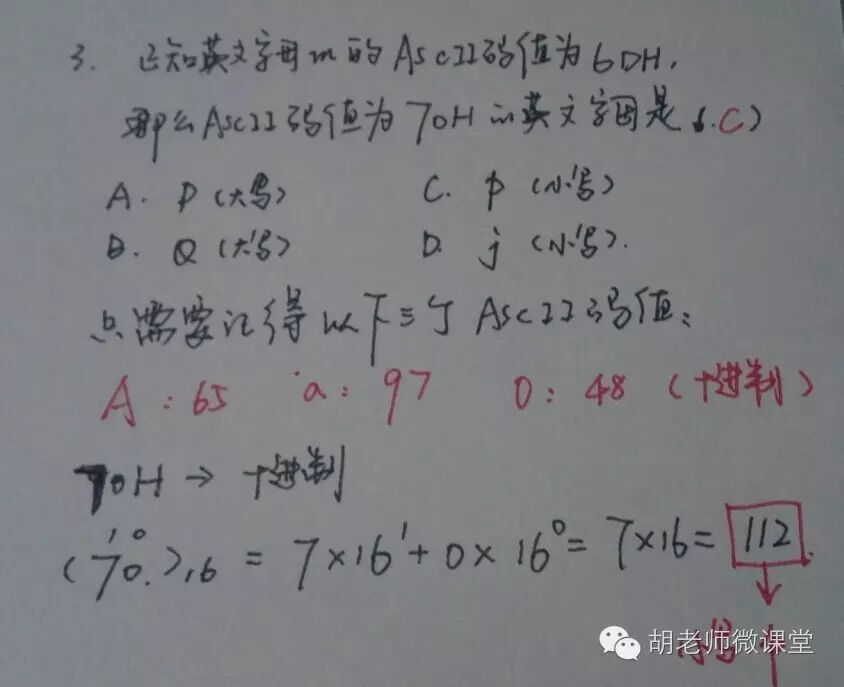 3. 已知英文字母m的AscII码值为6DH,
那么AscII码值为70H的英文字母是(C)
A. P(大写) C. p(小写)
B. Q(大写) D. j(小写).
只需要记得以下三个AscII码值:
A:65 a:97 0:48 (十进制)
70H → 十进制
1 0
(70.)16 = 7×16¹+0×16⁰=7×16=112.
小写p
胡老师微课堂